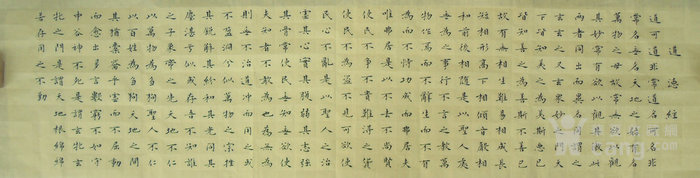 道德經
道可道非常道名可名非
常名無名天地之始有名
萬物之母故常無欲以觀
其妙常有欲以觀其徼此
兩者同出而異名同謂之
玄玄之又玄眾妙之門天
下皆知美之為美斯惡已
皆知善之為善斯不善已
故有無相生難易相成長
短相形高下相傾音聲相
和前後相隨是以聖人處
無為之事行不言之教萬
物作焉而不辭生而不有
為而不恃功成而弗居夫
唯弗居是以不去不尚賢
使民不爭不貴難得之貨
使民不為盜不見可欲使
民心不亂是以聖人之治
虛其心實其腹弱其志強
其骨常使民無知無欲使
夫知者不敢為也為無為
則無不治道沖而用之或
不盈淵兮似萬物之宗挫
其銳解其紛和其光同其
塵湛兮似或存吾不知誰
之子象帝之先天地不仁
以萬物為芻狗聖人不仁
以百姓為芻狗天地之間
其猶橐籥乎虛而不屈動
而愈出多言數窮不如守
中谷神不死是謂玄牝玄
牝之門是謂天地根綿綿
若存用之不勤